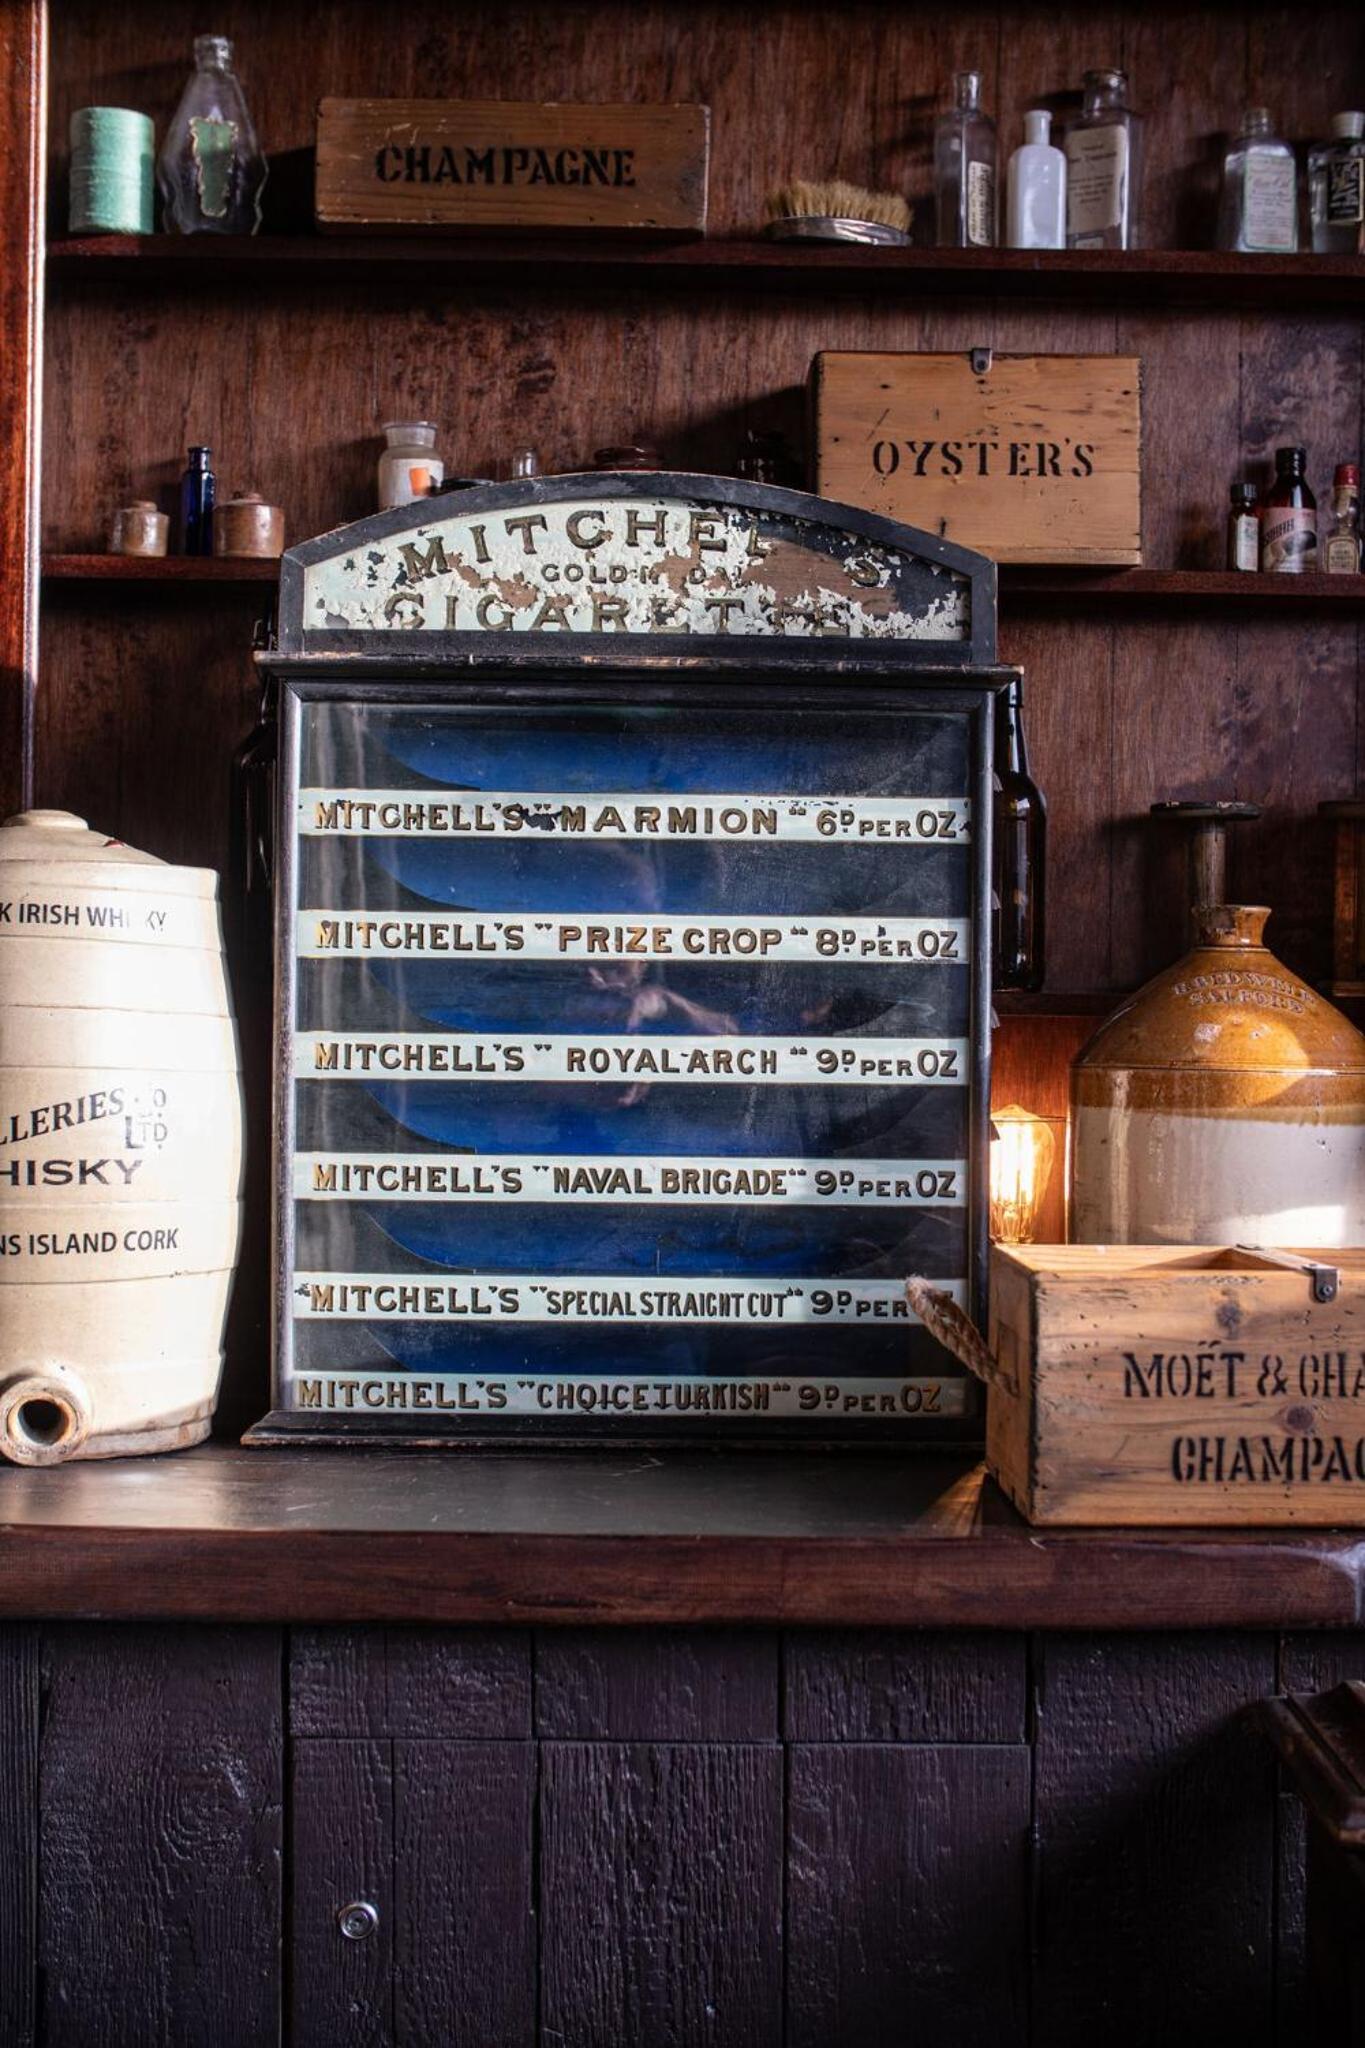 CHAMPAGNE
OYSTER'S
MITCHEL S
GOLD
CIGARETTES
MITCHELL'S "MARMION" 6D PER OZ
MITCHELL'S "PRIZE CROP" 8D PER OZ
MITCHELL'S "ROYAL ARCH" 9D PER OZ
MITCHELL'S "NAVAL BRIGADE" 9D PER OZ
MITCHELL'S "SPECIAL STRAIGHT CUT" 9D PER
MITCHELL'S "CHOICE TURKISH" 9D PER OZ
K IRISH WHI KY
LLERIES CO LTD
HISKY
NS ISLAND CORK
SALFORD
MOËT & CHA
CHAMPAG